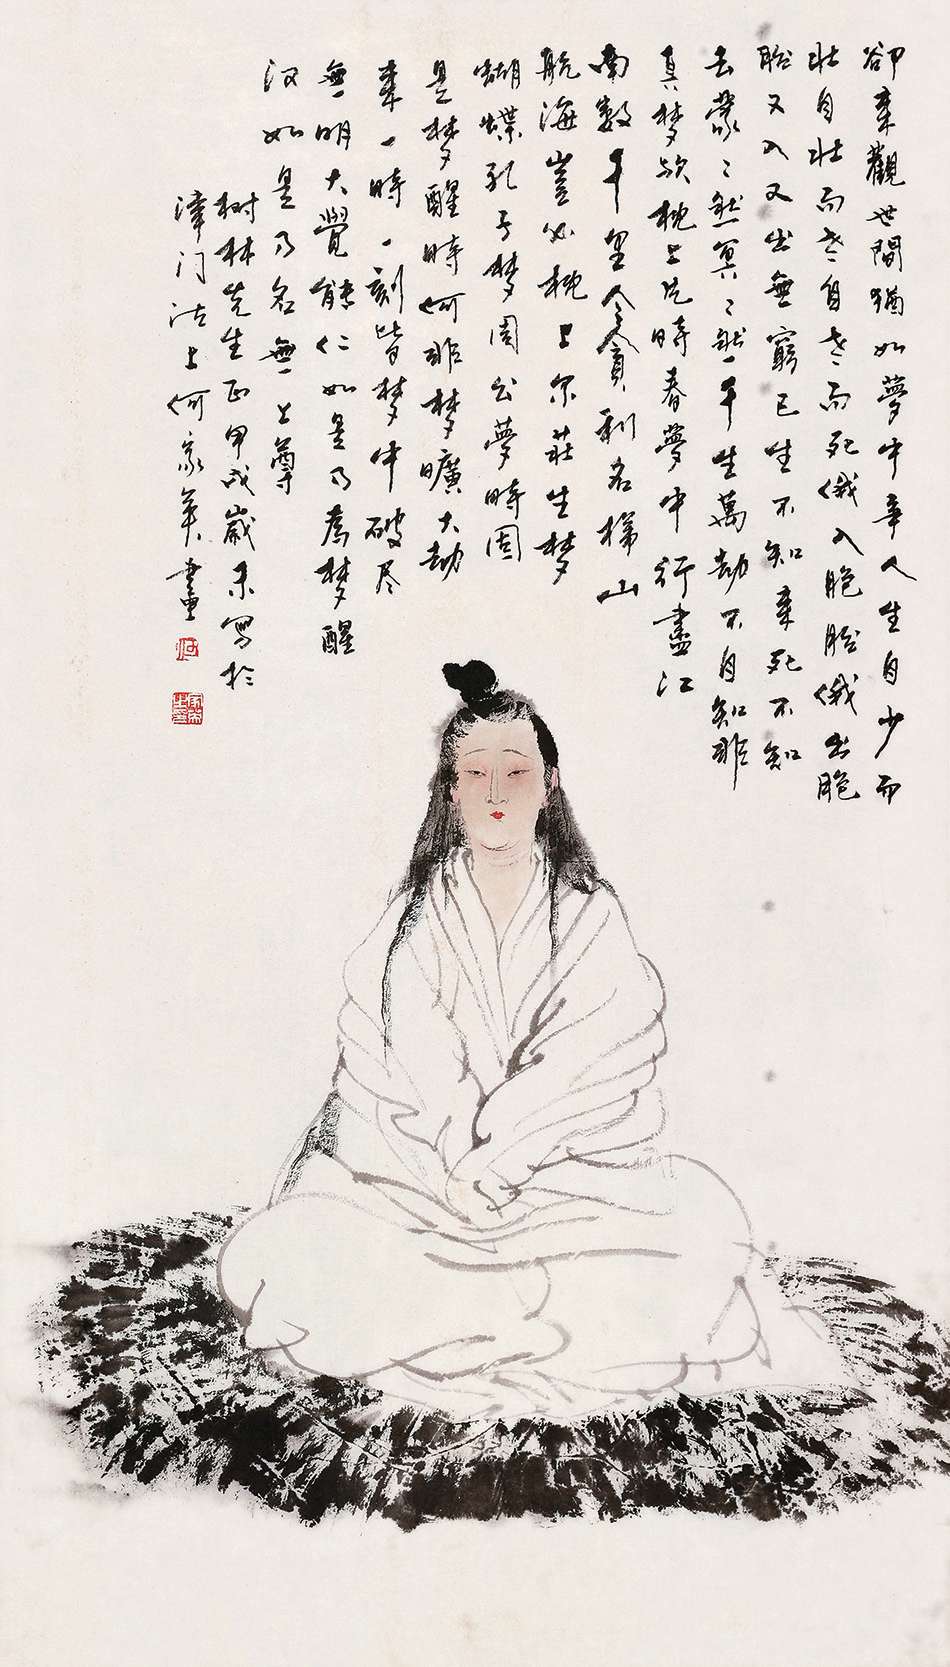 却来觀世間猶如夢中事人生自少而
壯自壯而老自老而死俄入胞胎俄出胞
胎又入又出無窮已生不知来死不知
去蒙々然冥々然千生萬劫不自知非
真梦欤枕上片時春夢中行盡江
南數千里今貪利名梯山
航海豈必枕上尔莊生梦
蝴蝶孔子梦周公夢時固
是梦醒時何非梦曠大劫
来一時一刻皆梦中破尽
無明大覺能仁如是乃為梦醒
汉如是乃名無上尊
树林先生正甲戌歲末寫於
津门沽上何家英畫